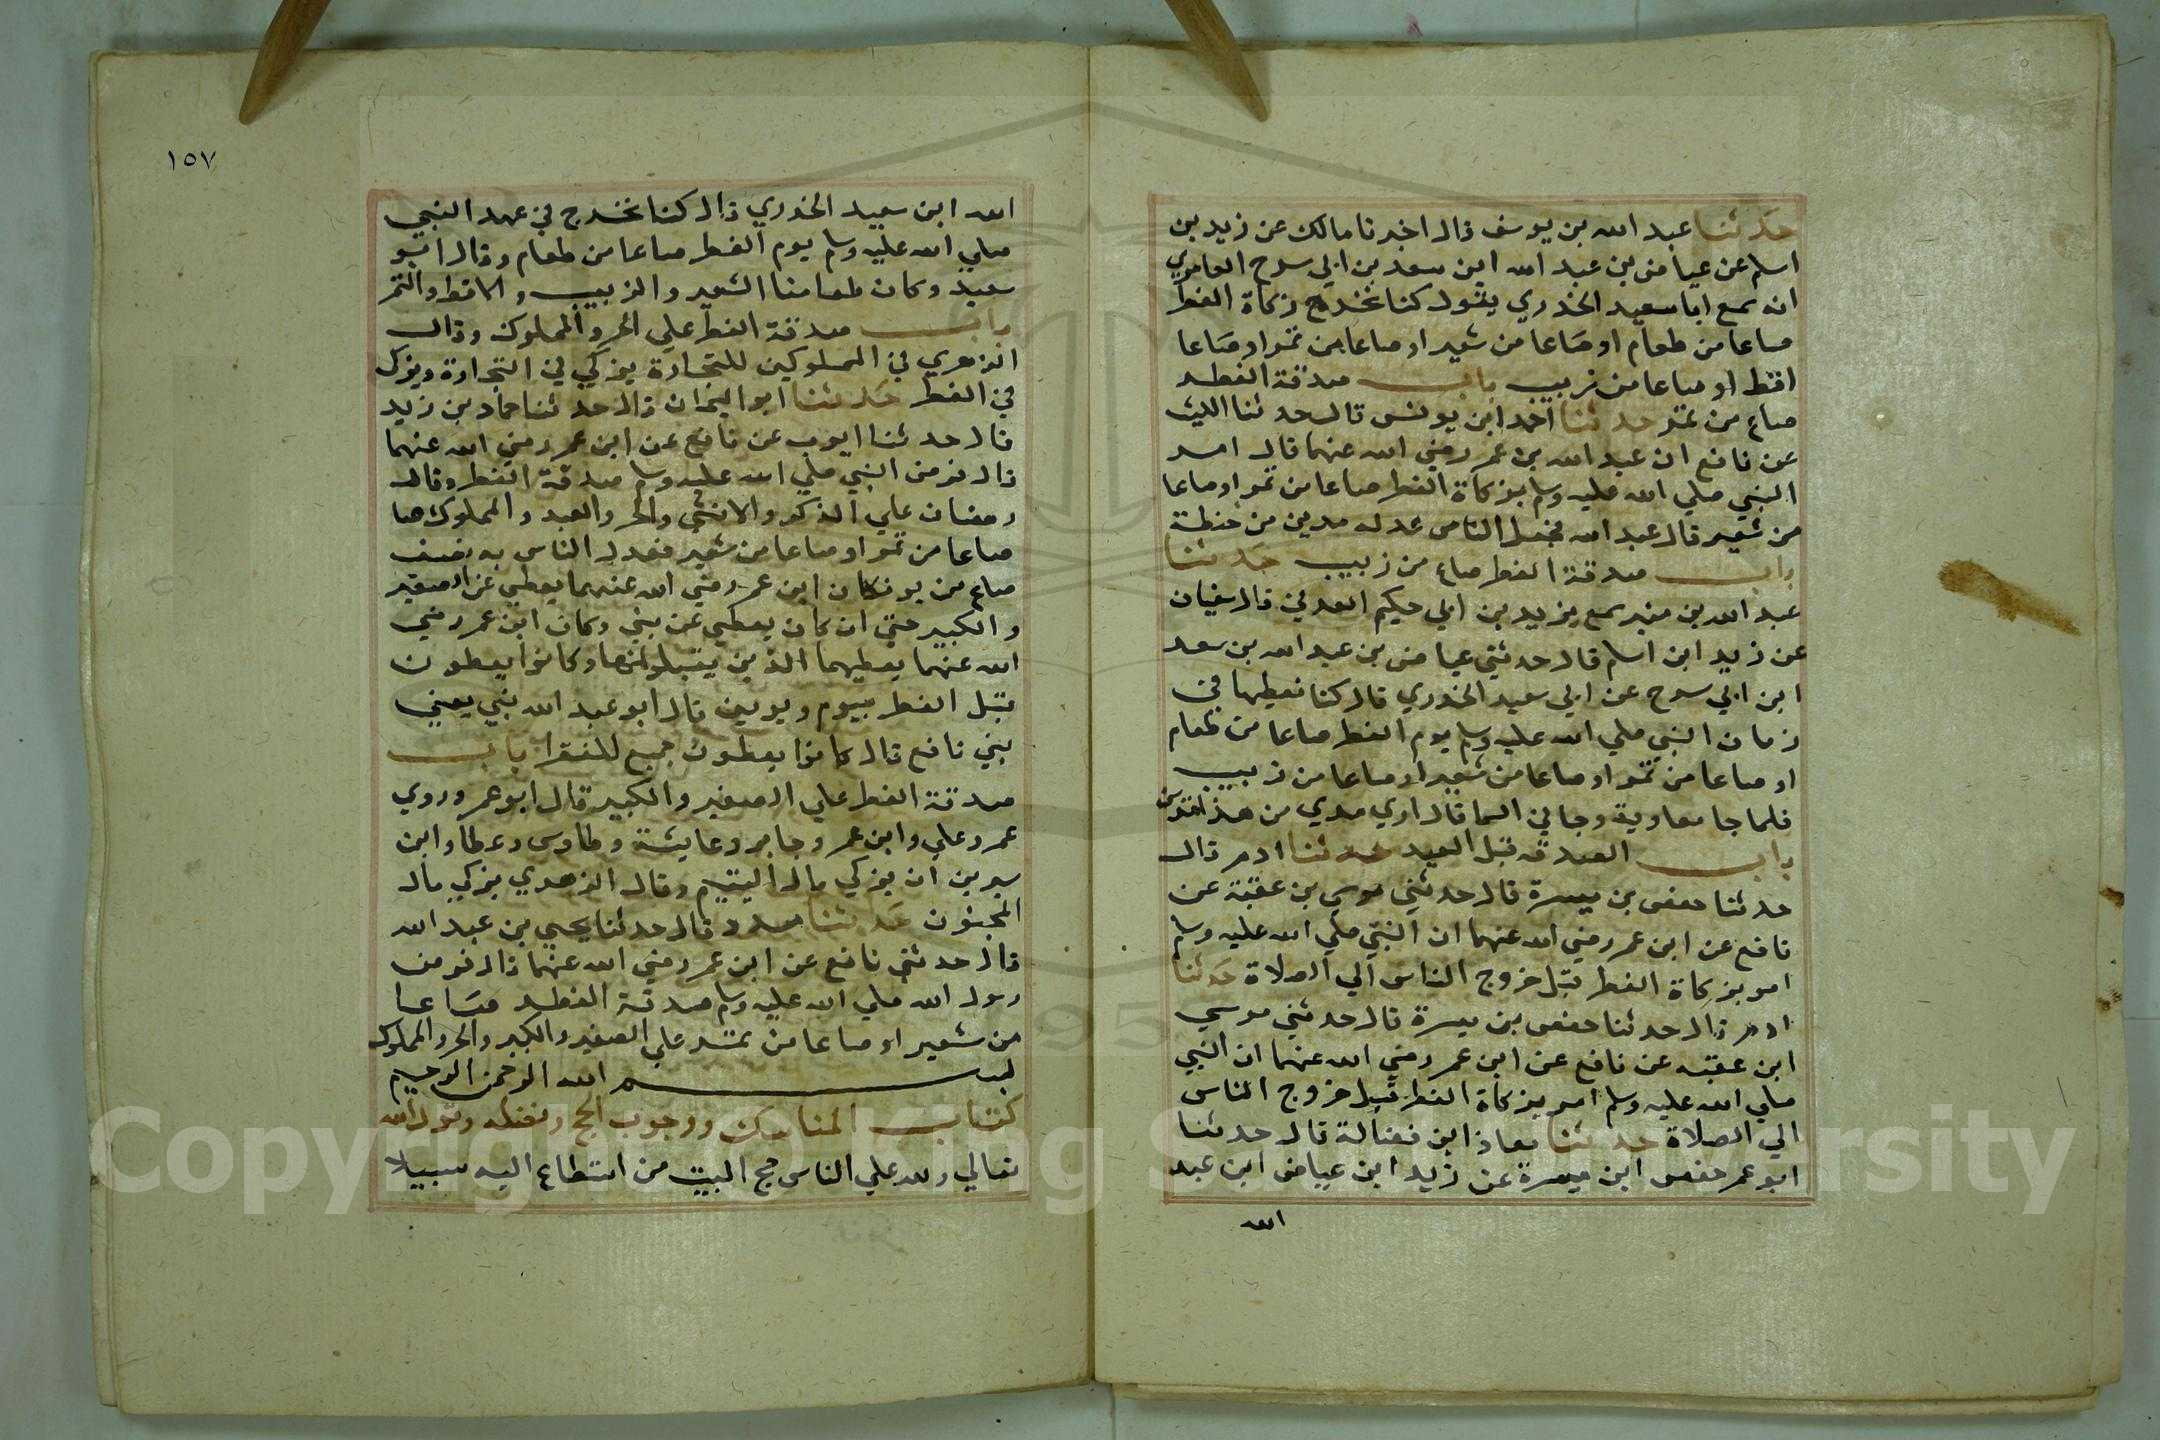 حدثنا عبد الله بن يوسف قال اخبرنا مالك عن زيد بن
اسلم عن عياض بن عبد الله ابن سعد بن ابي سرح العامري
انه سمع ابا سعيد الخدري يقول كنا نخرج زكاة الفطر
صاعا من طعام او صاعا من شعير او صاعا من تمر او صاعا
اقط او صاعا من زبيب باب صدقة الفطر
صاع من تمر حدثنا احمد ابن يونس قال حدثنا الليث
عن نافع ان عبد الله بن عمر رضي الله عنهما قال امر
النبي صلي الله عليه وسلم بزكاة الفطر صاعا من تمر او صاعا
من شعير قال عبد الله فجعل الناس عدله مدين من حنطة
باب صدقة الفطر صاع من زبيب حدثنا
عبد الله بن منير سمع يزيد بن ابي حكيم العدني قال سفيان
عن زيد ابن اسلم قال حدثني عياض بن عبد الله بن سعد
ابن ابي سرح عن ابي سعيد الخدري قال كنا نعطيها في
زمان النبي صلي الله عليه وسلم يوم الفطر صاعا من طعام
او صاعا من تمر او صاعا من شعير او صاعا من زبيب
فلما جا معاوية وجا في السما قال اري مدي من هذا
باب الصدقه قبل العيد حدثنا ادم قال
حدثنا حفص بن ميسرة قال حدثني موسي بن عقبة عن
نافع عن ابن عمر رضي الله عنهما ان النبي صلي الله عليه وسلم
امر بزكاة الفطر قبل خروج الناس الي الصلاة حدثنا
ادم قال حدثنا حفص بن ميسرة قال حدثني موسي
ابن عقبه عن نافع عن ابن عمر رضي الله عنهما ان النبي
صلي الله عليه وسلم امر بزكاة الفطر قبل خروج الناس
الي الصلاة حدثنا معاذ ابن فضالة قال حدثنا
ابو عمر حفص ابن ميسرة عن زيد ابن عياض ابن عبد
الله
١٥٧
الله ابن سعيد الخدري قال كنا نخرج في عهد النبي
صلي الله عليه وسلم يوم الفطر صاعا من طعام وقال ابو
سعيد وكان طعامنا الشعير والزبيب والاقط والتمر
باب صدقة الفطر علي الحر والمملوك وقال
الزهري في المملوكين للتجارة يزكي في التجارة ويزك
في الفطر حدثنا ابو النعمان قال حدثنا حماد بن زيد
قال حدثنا ايوب عن نافع عن ابن عمر رضي الله عنهما
قال فرض النبي صلي الله عليه وسلم صدقة الفطر وقال
رمضان علي الذكر والانثي والحر والعبد والمملوك صا
صاعا من تمر او صاعا من شعير فعدل الناس به نصف
صاع من بر فكان ابن عمر رضي الله عنهما يعطي عن الصغير
والكبير حتي ان كان يعطي عن بني وكان ابن عمر رضي
الله عنهما يعطيهما الذين يقبلونها وكانوا يعطون
قبل الفطر بيوم ويومين قال ابو عبد الله بني يعني
بني نافع قال كانوا يعطون جميع للفقرا باب
صدقة الفطر علي الصغير والكبير قال ابو عمر وروي
عمر وعلي وابن عمر وجابر وعايشة وطاوس وعطا وابن
سيرين ان يزكي مال اليتيم وقال الزهدي يزكي مال
المجنون حدثنا مسدد قال حدثنا يحيي بن عبد الله
قال حدثني نافع عن ابن عمر رضي الله عنهما قال فرض
رسول الله صلي الله عليه وسلم صدقة الفطر صاعا
من شعير او صاعا من تمر علي الصغير والكبير والحر والمملوك
بسم الله الرحمن الرحيم
كتاب المناسك ووجوب الحج وفضله وقول الله
تعالي ولله علي الناس حج البيت من استطاع اليه سبيلا
Copyright © King Saud University